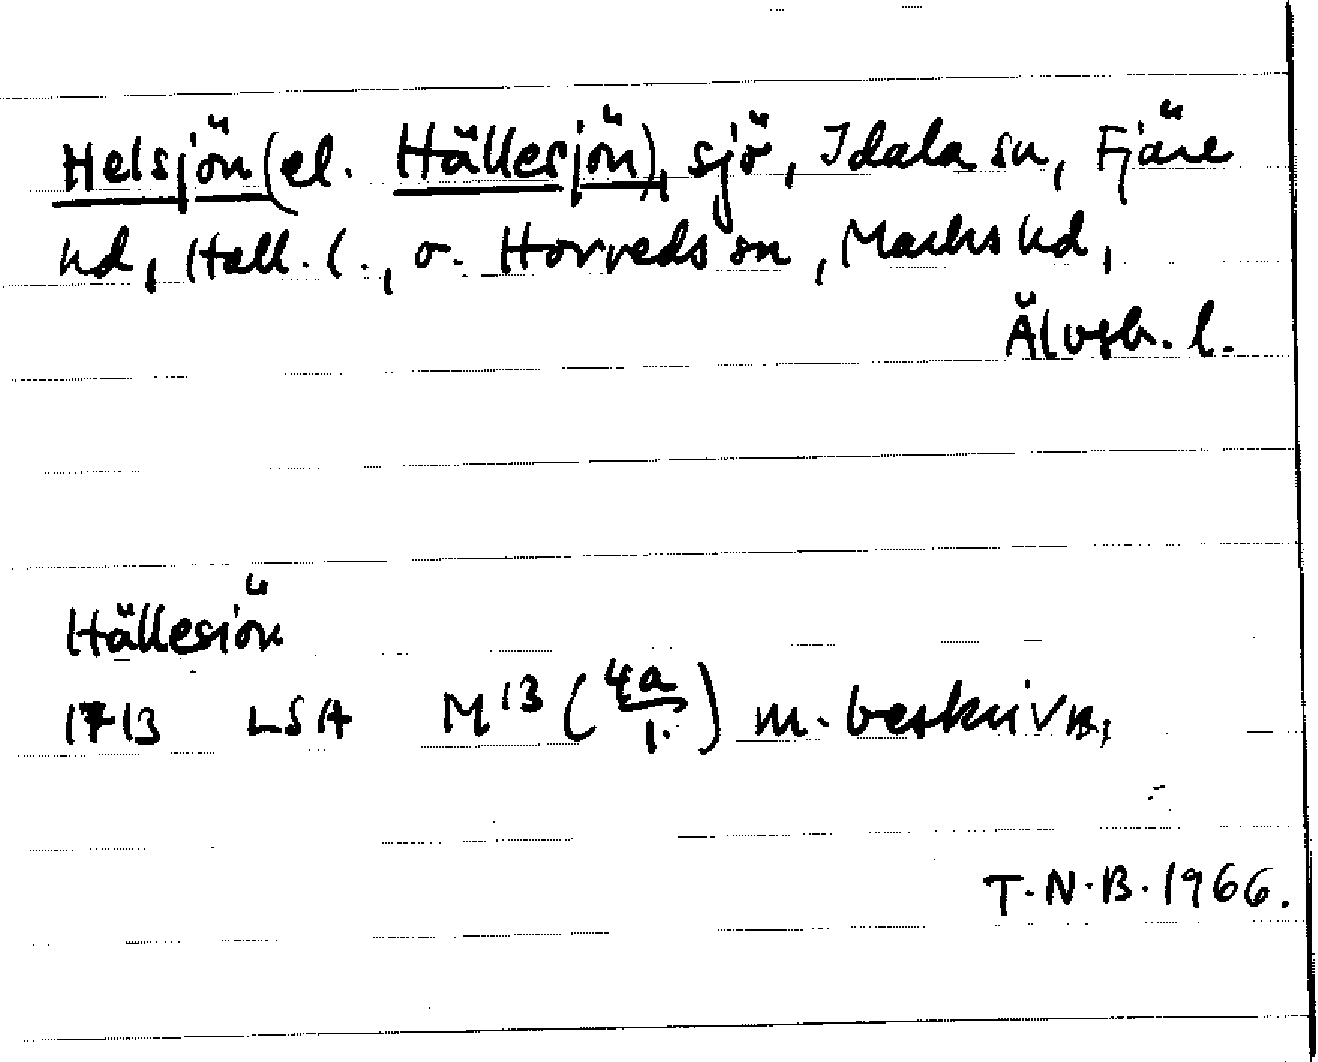 Helsjön (el. Hällesjön), sjö, Idala sn, Fjäre
hd, Hall. l., o. Horreds sn, Marks hd,
Älvsb. l.
Hällesiön
1713 LSA M13 (4a/1.) m. beskrivn.
T.N.B. 1966.